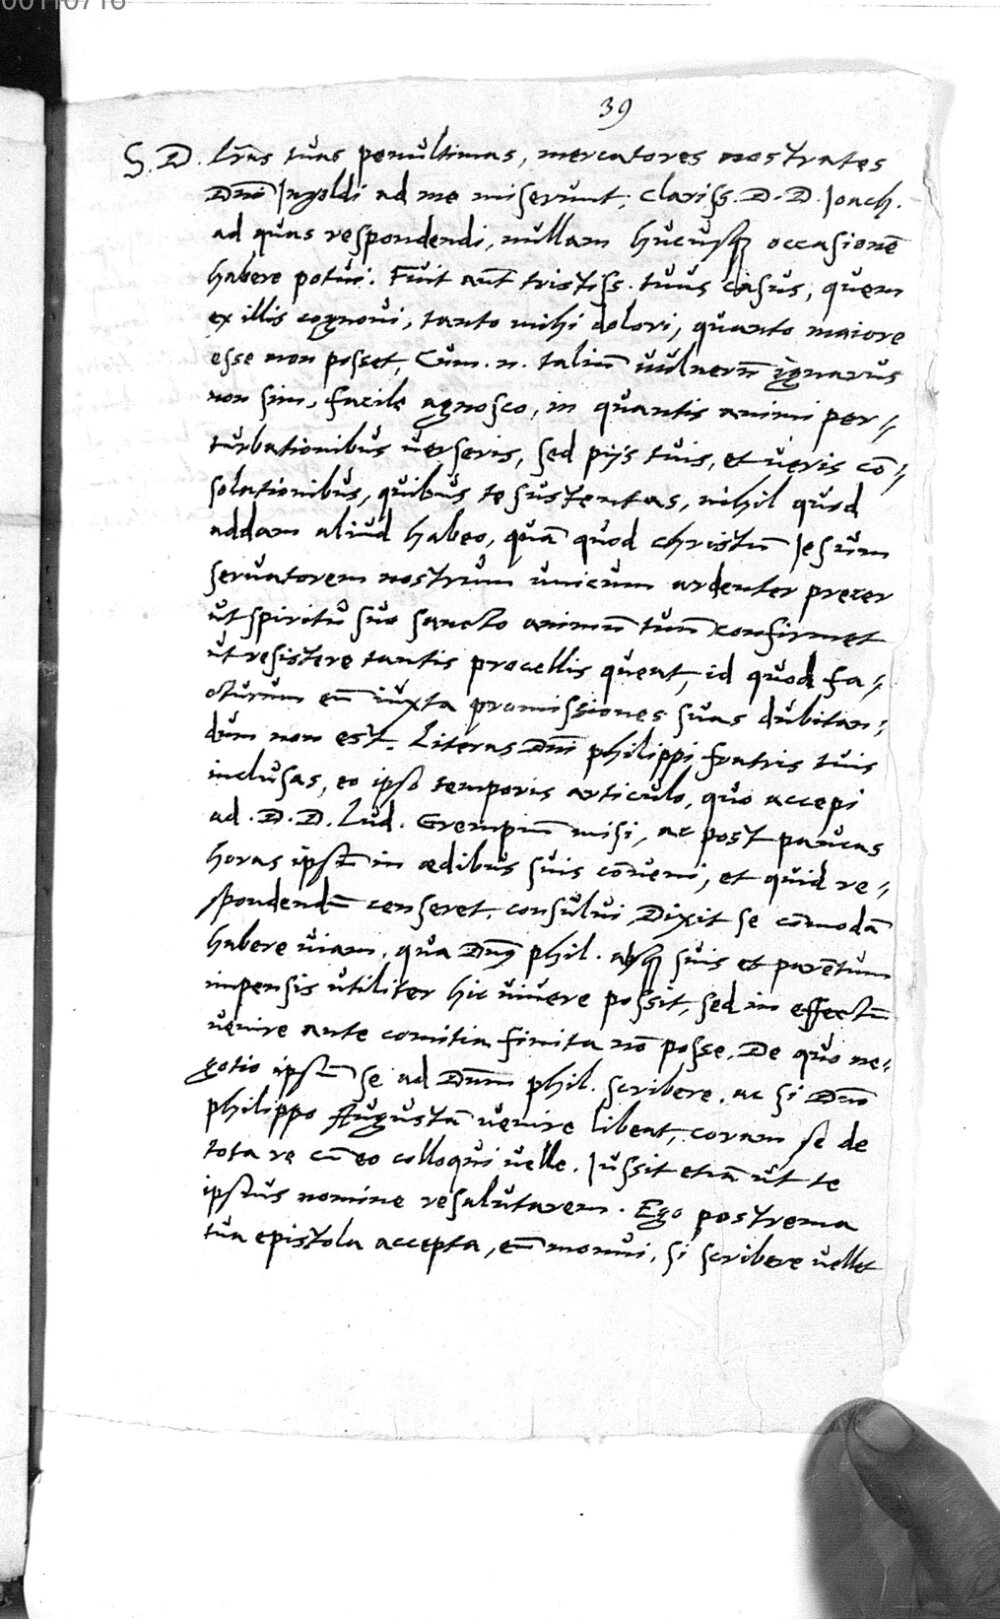 00110716
39
S. D. Lr̃as tuas penultimas, mercatores nostrates
Dñi Ingoldi ad me miserunt, Clariss. D. D. Ioach.
ad quas respondendi, nullam hucusq; occasionē
habere potui. Fuit aut̄ tristiss. tuus casus, quem
ex illis cognoui, tanto mihi dolori, quanto maiore
esse non posset, Cum .n. taliū vulnerū ignarus
non sim, facile agnosco, in quantis animi per-
turbationibus uerseris, sed pijs tuis, et ueris cō-
solationibus, quibus te sustentas, nihil quod
addam aliud habeo, quā quod christū Iesum
seruatorem nostrum unicum ardenter precer
ut spiritu suo sancto animū tuū confirmet
ut resistere tantis procellis queat, id quod fa-
cturum eū iuxta promissiones suas dubitan-
dum non est. Literas Dñi philippi fratris tuis
inclusas, eo ipso temporis articulo, quo accepi
ad . D. D. Lud. Grempiū misi, ac post paucas
horas ipsū in ædibus suis cōueni, et quid re-
spondendū censeret, consului, Dixit se cōmodā
habere uiam, qua Dn̄s phil. absq; suis et parentum
impensis utiliter hic uiuere possit, sed in effectū
uenire ante comitia finita nō posse. De quo ne-
gotio ipsū se ad Dn̄m phil. scribere, ac si Dn̄o
philippo Augustā uenire libeat, coram se de
tota re cū eo colloqui uelle. Iussit etiā ut te
ipsius nomine resalutarem. Ego postrema
tua epistola accepta, eū monui, si scribere uellet